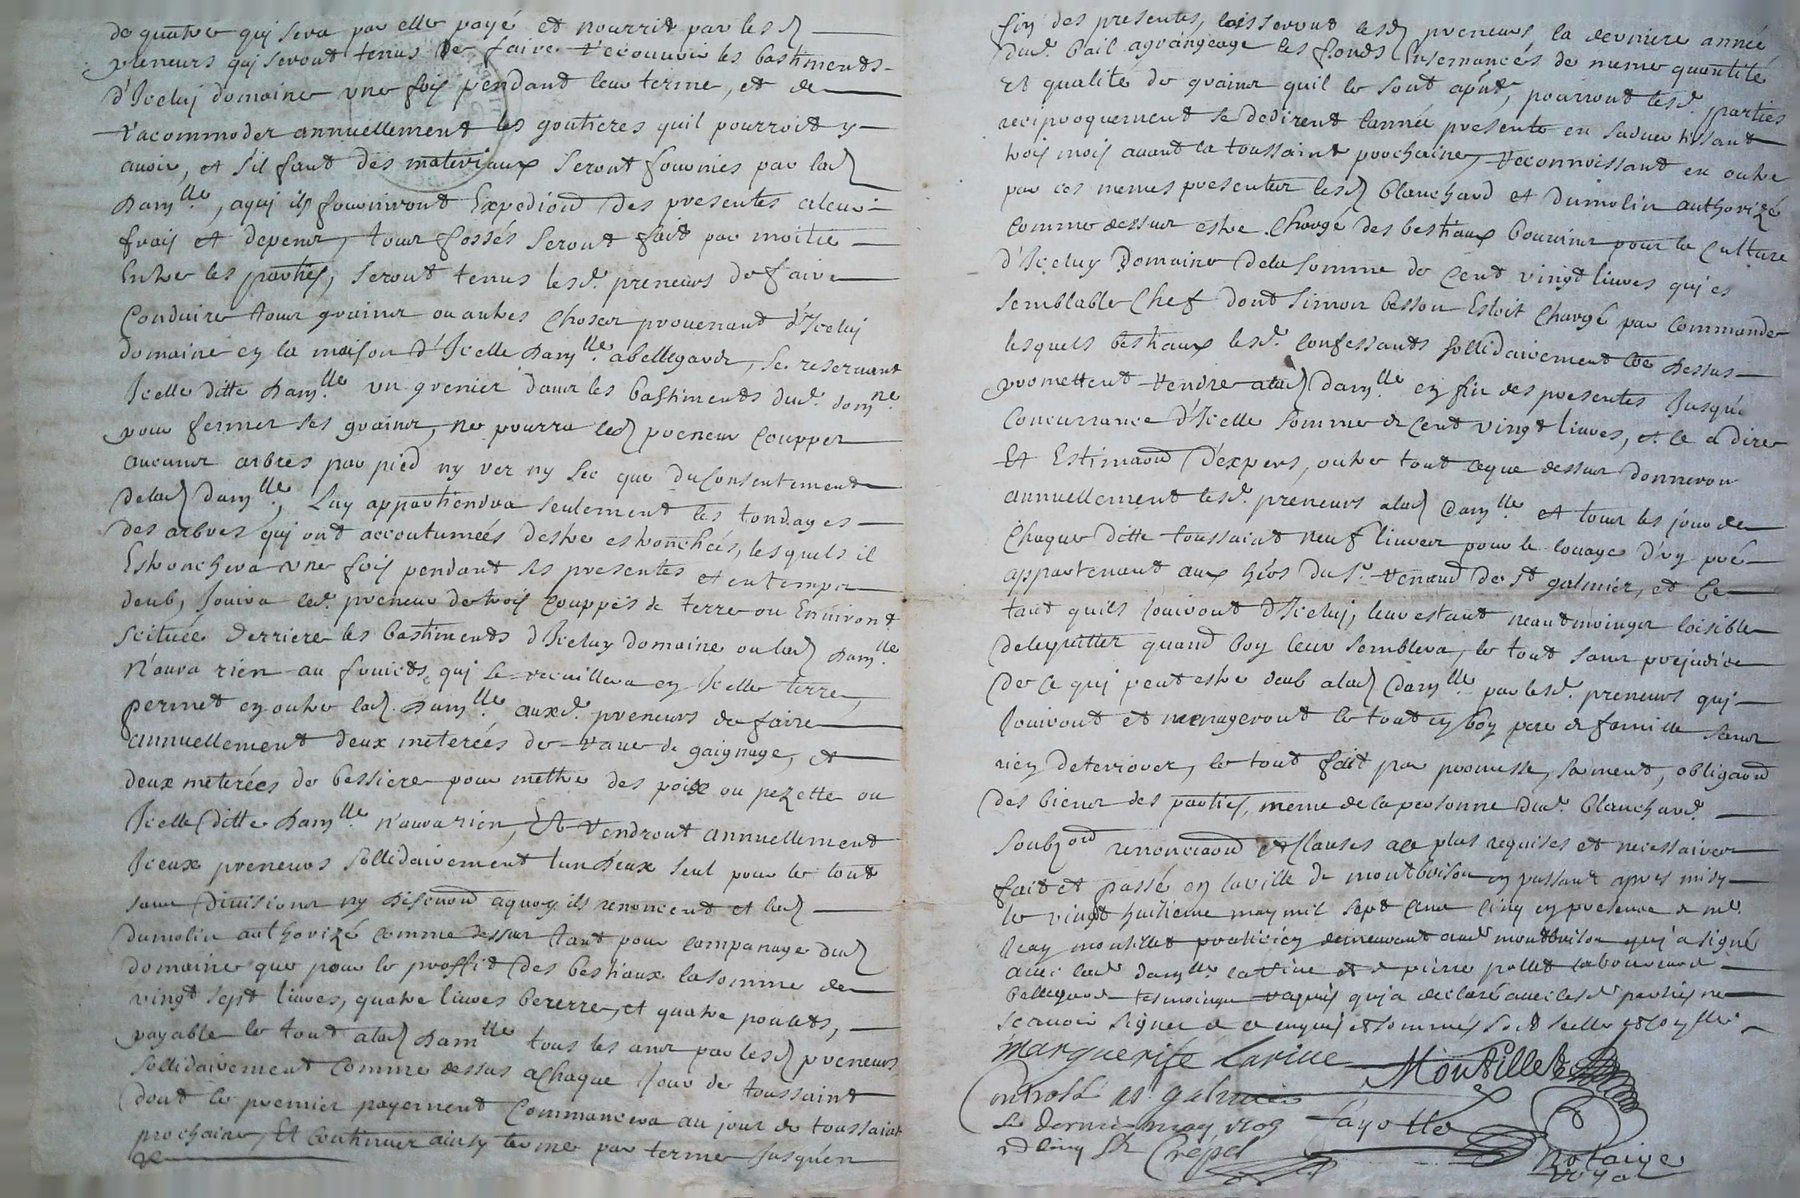 de quatre quj sera par elle payé et nourrit par lesd
preneurs quj seront tenus de faire recouurir les bastiments
d'Iceluj domaine une fois pendant leur terme, et de
racommoder annuellement les goutieres quil pourroit y
auoir, et s'il faut des materiaux seront fournies par lad
dam.lle, aquj ils fourniront Expediond des presentes aleur
frais et depens, tous fossés seront fait par moitié
Entre les parties, seront tenus lesd. preneurs de faire
Conduire tous grains ou autres choses prouenant d'Iceluj
domaine en la maison d'Icelle dam.lle abellegarde, se reseruant
Icelle ditte dam.lle un grenier dans les bastiments dud. dom.ne
pour fermer ses grains, ne pourra led preneur Coupper
aucuns arbres par pied ny ver ny sec que du Consentement
delad dam.lle, Luy appartiendra seulement les tondages
des arbres quj ont accoutumées destre estronchées, lesquels il
Estronchera une fois pendant les presentes et en temps
deub, Jouira led. preneur de trois Couppés de terre ou Enuiront
scituée derriere les bastiments d'Iceluy domaine ou lad dam.lle
n'aura rien au fruicts quj se recuillera en Icelle terre,
permet en outre lad. dam.lle auxd. preneurs de faire
annuellement deux meterées de raue de gaignage, et
deux meterées de bessiere pour mettre des poix ou pezette ou
Icelle ditte dam.lle n'aura rien, Et rendront annuellement
Iceux preneurs sollidairement lun deux seul pour le tout
sans diuisions ny discuond aquoy ils renoncent et lad
dumolin authorizé comme dessus tant pour companage dud
domaine que pour le proffit des bestiaux la somme de
vingt sept liures, quatre liures beurre, et quatre poulets,
payable le tout alad dam.lle tous les ans par lesd preneurs
sollidairement comme dessus achaque jour de toussaint
dont le premier payement Commancera au jour de toussaint
prochaine, Et continuer ainsy terme par terme jusqu'en
fin des presentes, laisseront lesd preneurs la derniere année
dud. bail agrangeage les fonds Ensemancés de meme quantité
Et qualité de grains quil le sont apnt, pourront lesd. parties
reciproquement se dedirent lannée presente en saduertissant
trois mois auant la toussaint prochaine, reconnoissant en outre
par ces memes presentes lesd blanchard et dumolin authorizé
comme dessus estre chargé des bestiaux bouuins pour la culture
d'Iceluy domaine dela somme de Cent vingt liures quj es
semblable chef dont simon besson Estoit chargé par commande
lesquels bestiaux lesd. confessants sollidairement Coe dessus
promettent rendre alad dam.lle en fin des presentes jusqu'a
concurrance d'Icelle somme de cent vingt liures, et ce a dire
Et Estimaond d'expers, outre tout ceque dessus donneron
annuellement lesd. preneurs alad dam.lle et tous les jour de
chaque ditte toussaint neuf liures pour le louage d'vn pré
appartenant aux hérs du Sr. renaud de St galmier, et ce
tant quils jouiront d'Iceluj, leur estant neantmoinges loisible
delequitter quand bon leur semblera, le tout sans prejudice
de ce quj peut estre deub alad dam.lle par lesd. preneurs quj
jouiront et menageront le tout en bon pere de famille sans
rien deteriorer, le tout fait par promesse, serment, obligaond
des biens des parties, meme de la personne dud. blanchard.
soubzond renonciaond et clauses ace plus requises et necessaires
fait et passé en la ville de montbrison en passant apres midy
le vingt huitieme may mil sept cent cinq en presence de me.
Jean montillet praticien demeurant aud. montbrison quj a signé
auec lad. dam.lle lariue et de pierre pollet laboureur de
bellegarde tesmoings requis quj a declaré auec lesd. parties ne
scauoir signer de ce enquis et sommés
marguerite lariue Montillet
Controllé a St galmier
Le dernier may 1705 Fayolle
Crépet
Notaire
royal